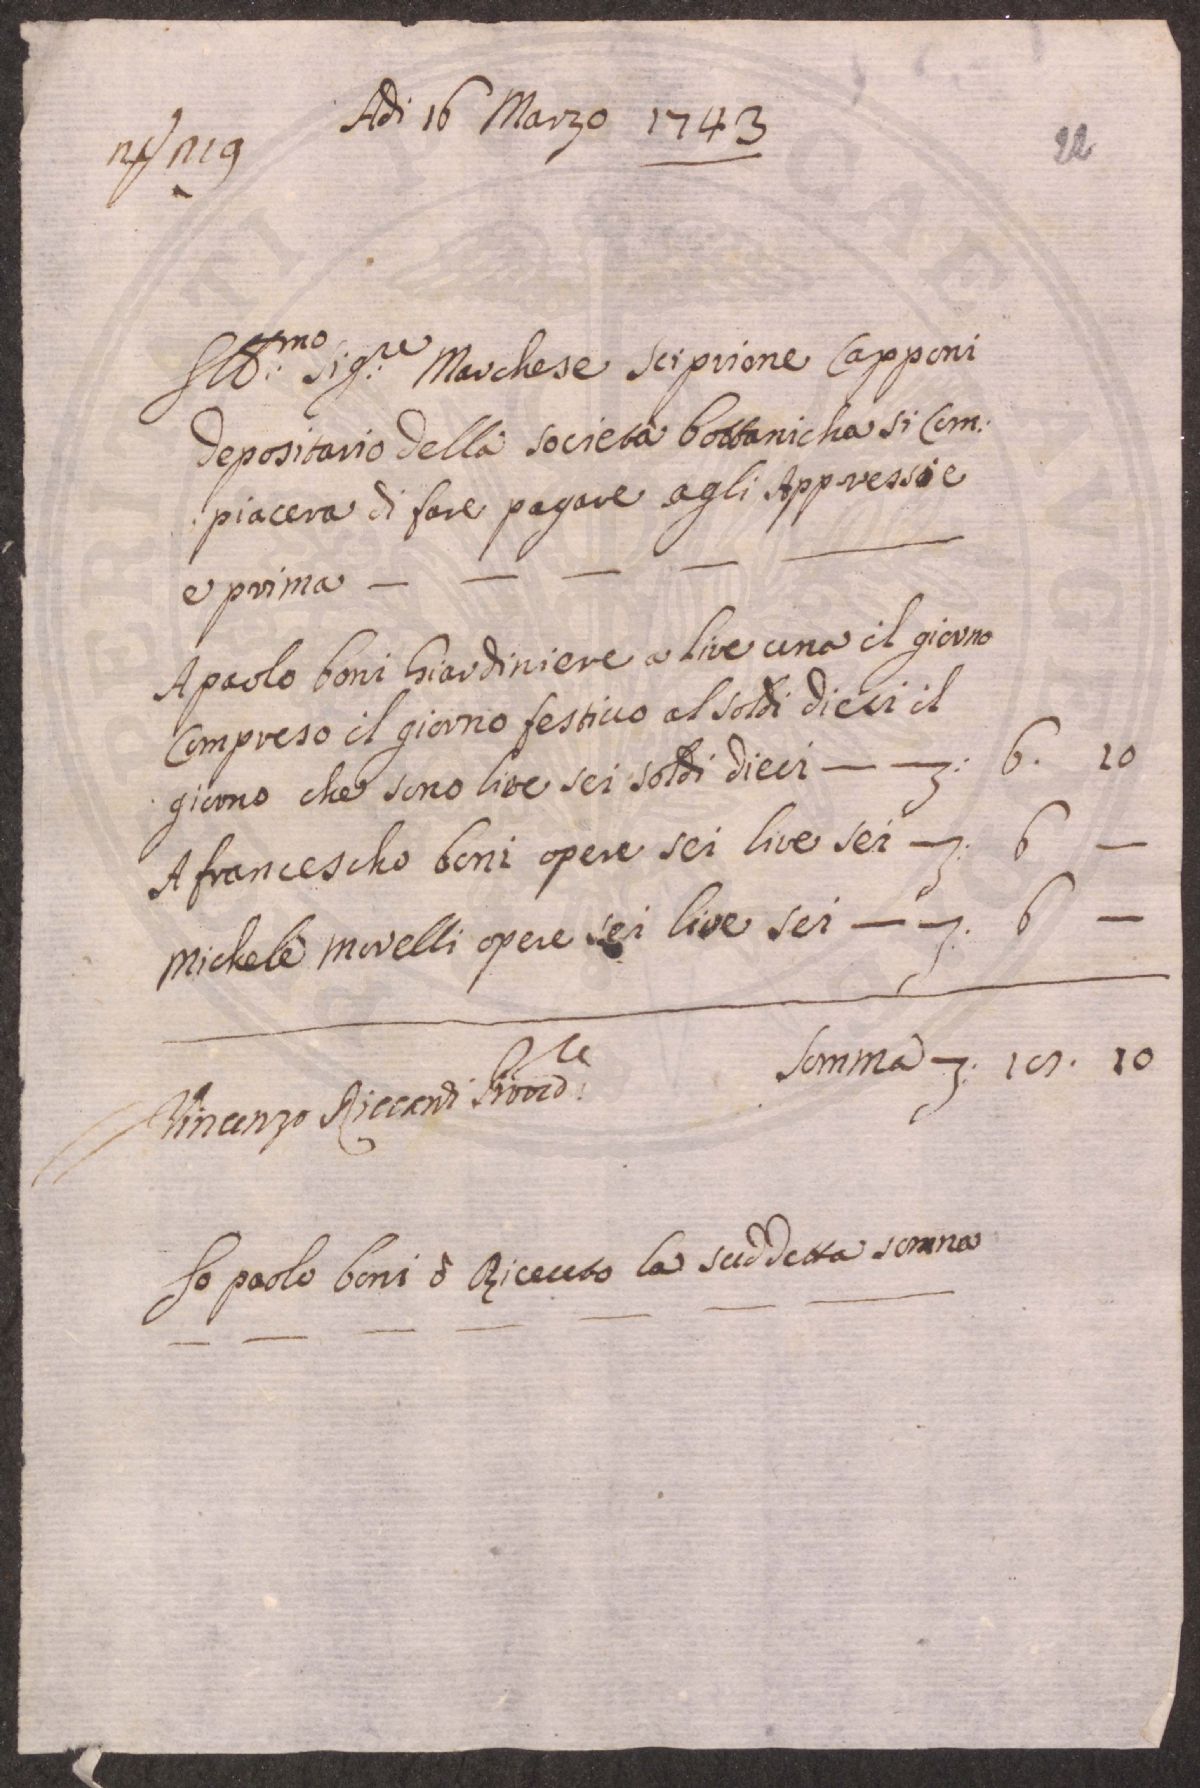 Adi 16 Marzo 1743
n19
22
Ill:mo Sig:re Marchese Sciprione Capponi
depositario della società bottanicha si Com:
:piacera di fare pagare agli Appressi e
e prima — — — — —
A paolo boni Giardiniere a lire una il giorno
Compreso il giorno festiuo al soldi dieci il
giorno che sono lire sei soldi dieci — — 6. 10
A francescho boni opere sei lire sei — 6 —
Michele Morelli opere sei lire sei — — 6 —
Somma — 18. 10
Vincenzo Riccardi Provvd:re
Io paolo boni ò Riceuto la suddetta somma
— — — — — — —